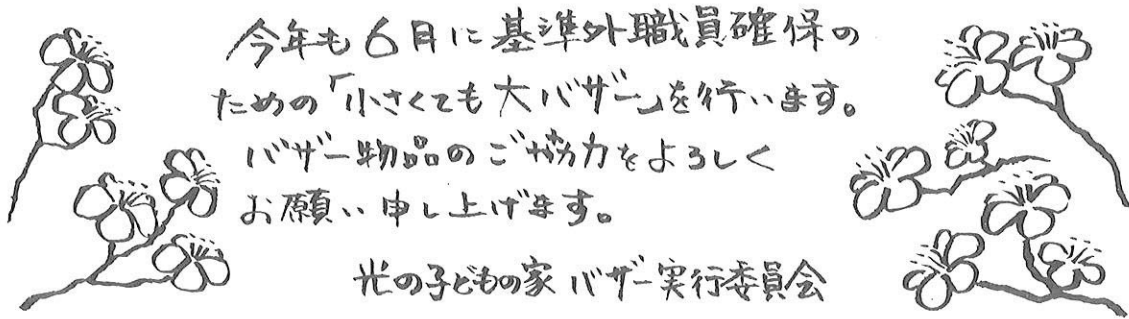 今年も6月に基準外職員確保の
ための「小さくても大バザー」を行います。
バザー物品のご協力をよろしく
お願い申し上げます。
光の子どもの家バザー実行委員会